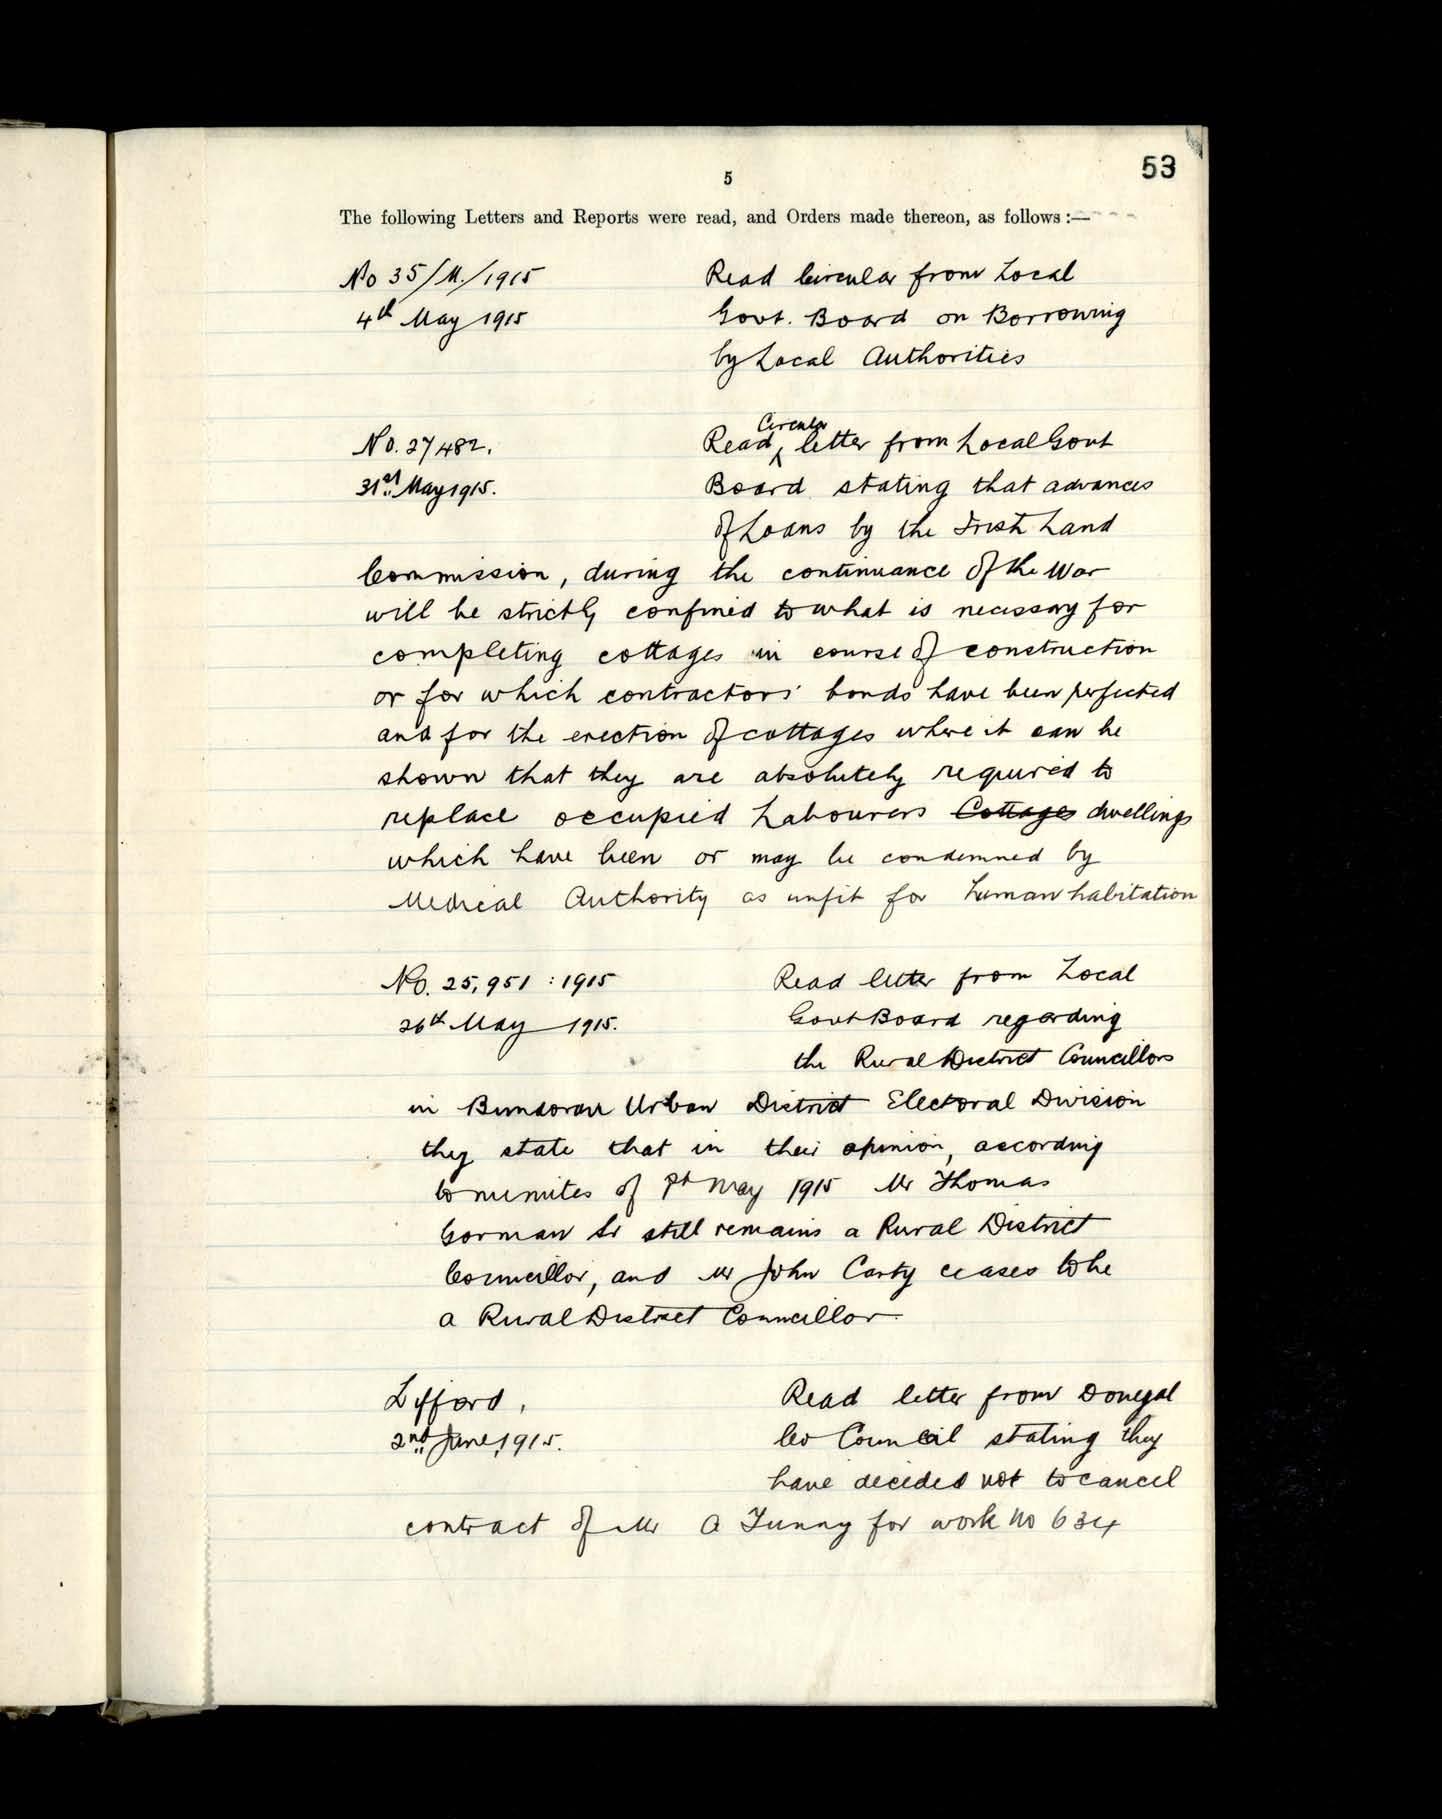 53
5
The following Letters and Reports were read, and Orders made thereon, as follows :—
No 35/M./1915 Read Circular from Local
4th May 1915 Govt. Board on Borrowing
by Local Authorities
Circular
No. 27482. Read letter from Local Govt
31st May 1915. Board stating that advances
of Loans by the Irish Land
Commission, during the continuance of the War
will be strictly confined to what is necessary for
completing cottages in course of construction
or for which contractors' bonds have been perfected
and for the erection of cottages where it can be
shown that they are absolutely required to
replace occupied Labourers Cottages dwellings
which have been or may be condemned by
Medical Authority as unfit for human habitation
No. 25,951 : 1915 Read letter from Local
26th May 1915. Govt Board regarding
the Rural District Councillors
in Bundoran Urban District Electoral Division
they state that in their opinion, according
to minutes of May 1915 Mr Thomas
Gorman Sr still remains a Rural District
Councillor, and Mr John Carty ceases to be
a Rural District Councillor
Lifford, Read letter from Donegal
2nd June, 1915. Co Council stating they
have decided not to cancel
contract of Mr A Funny for work no 634